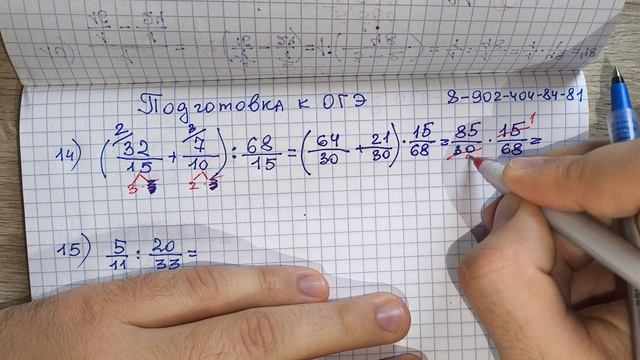 Подготовка к ОГЭ 8-902-404-84-81
14) (32/15 + 7/10) : 68/15 = (64/30 + 21/30) · 15/68 = 85/30 · 15/68 =
2 3 1
3·5 2·5
15) 5/11 : 20/33 =